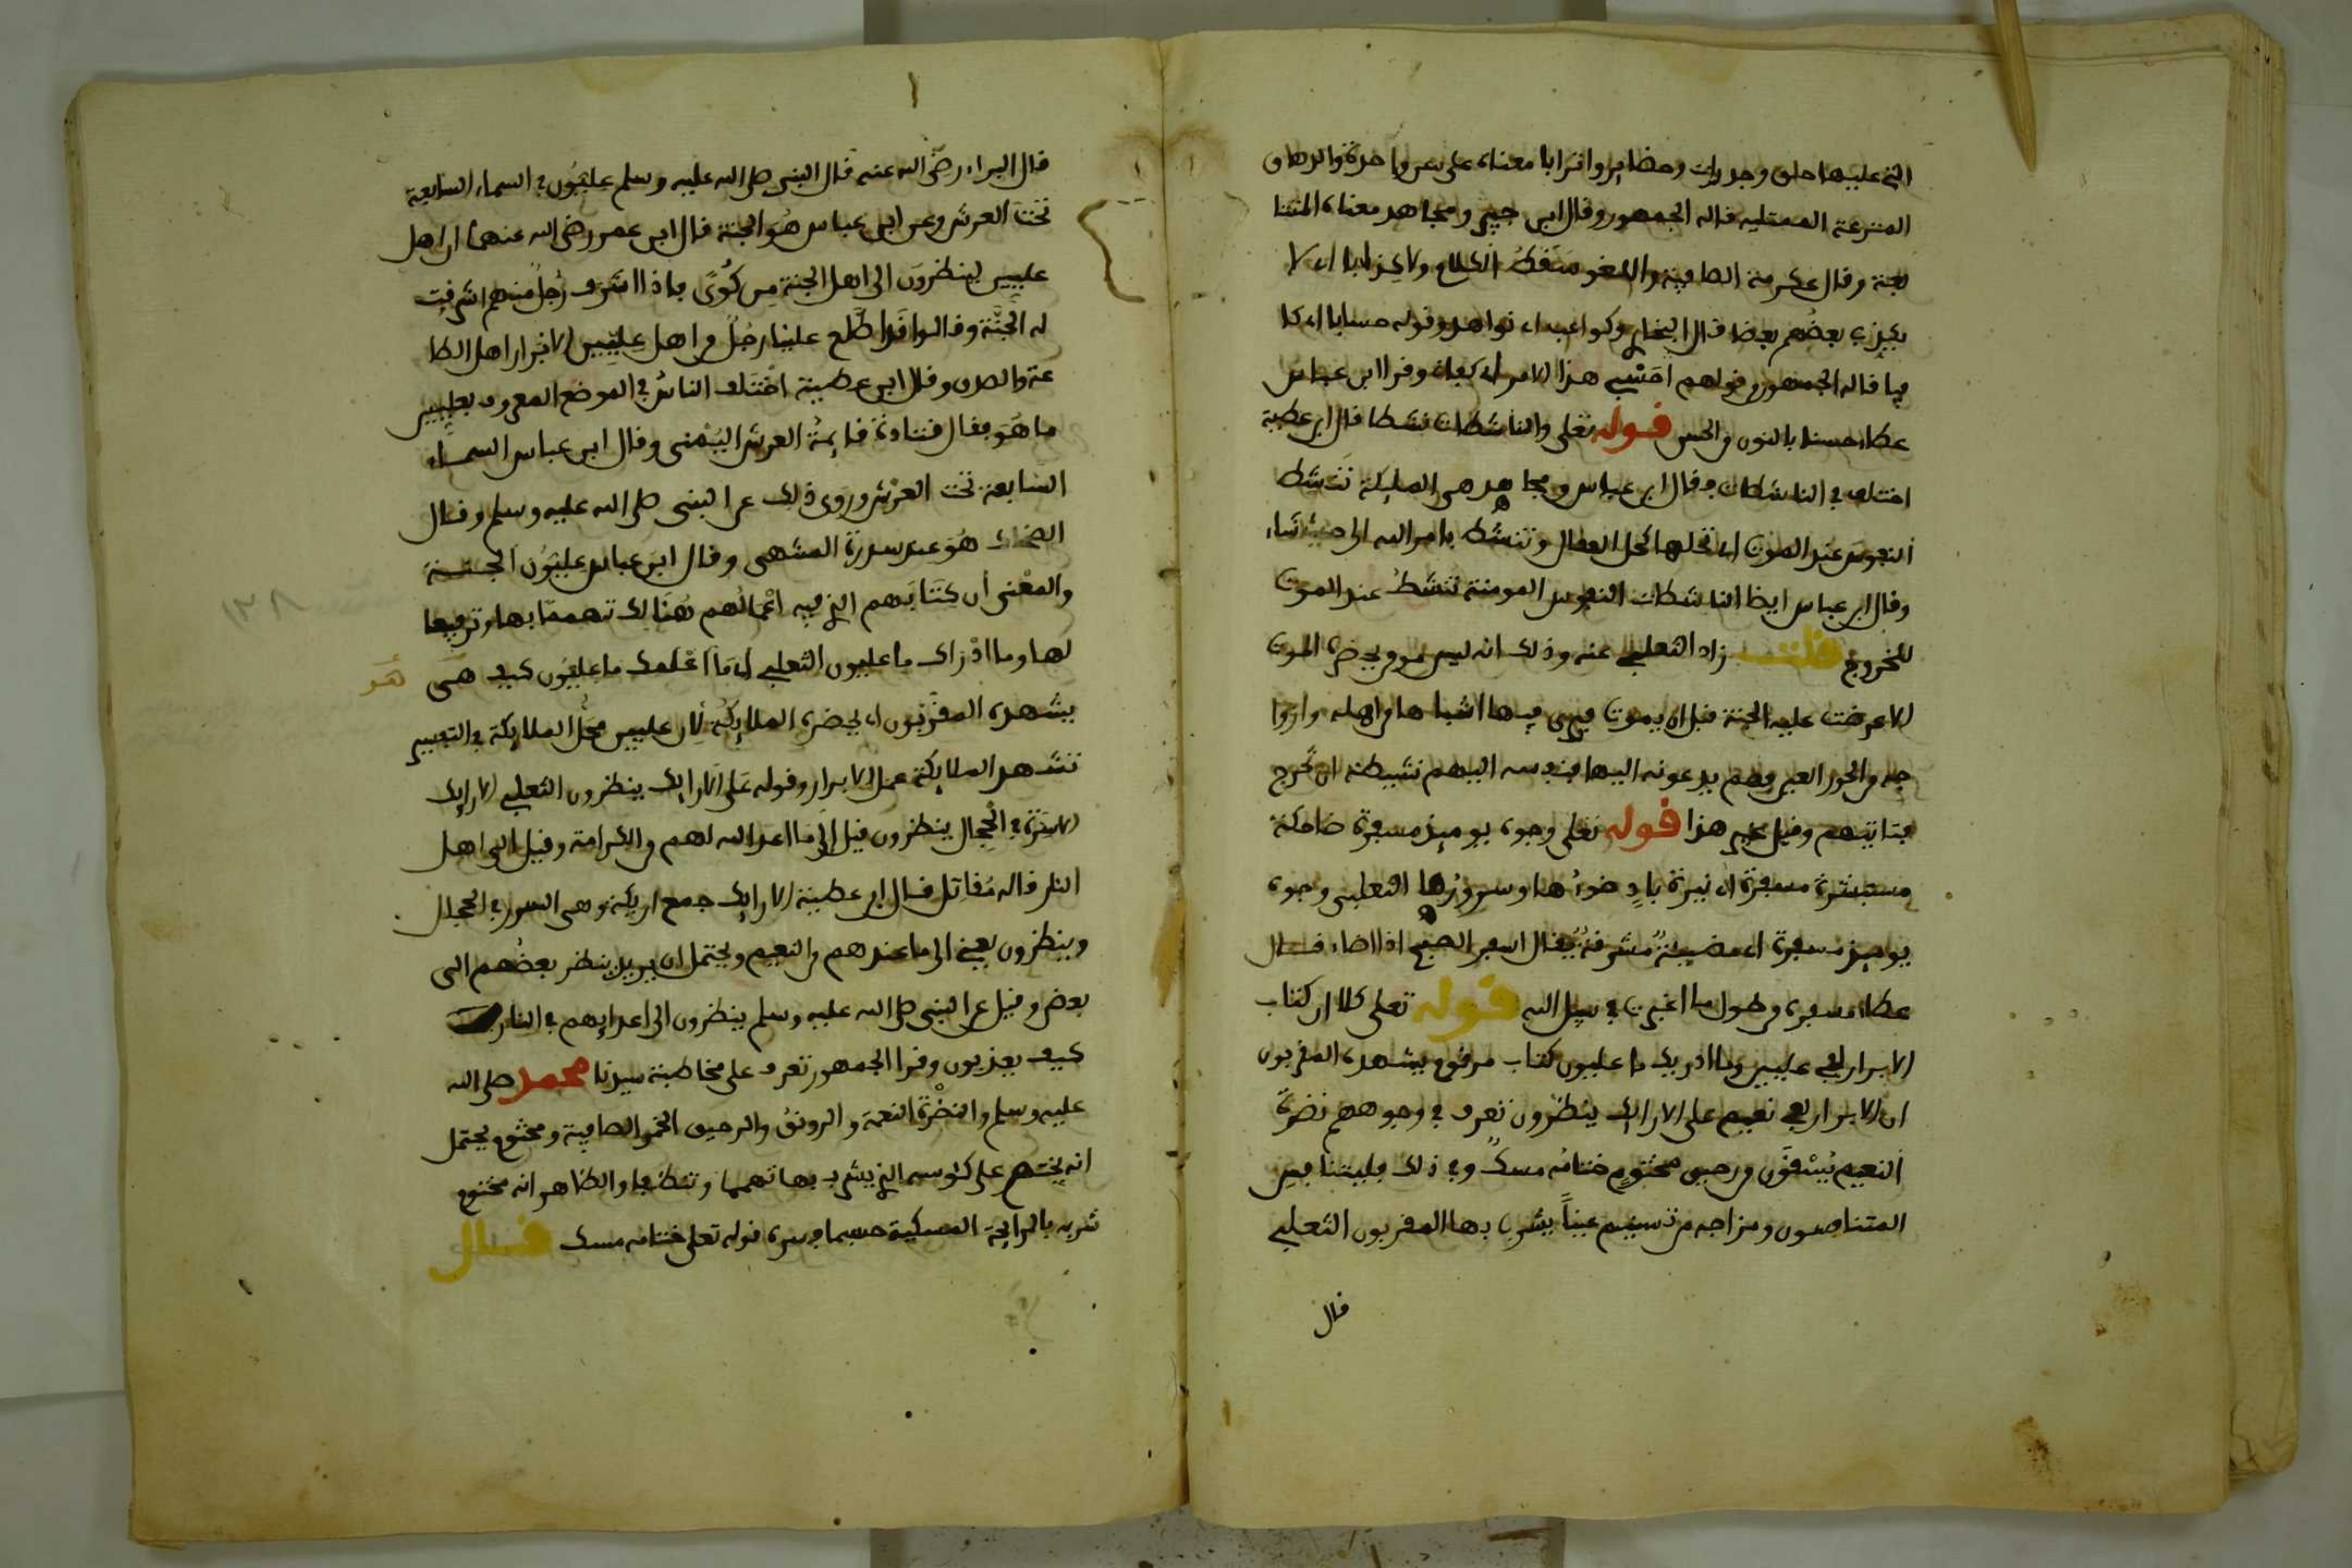 التي عليها حلق وجدرات وحضاير واترابا معناه على سن واحدة والدهاق
المترعة الممتلية قاله الجمهور وقال ابن جبير ومجاهد معناه المتتا
بعة وقال عكرمة الصافية واللغو سقط الكلام ولا كذابا اي لا
يكذب بعضهم بعضا قال البخاري وكواعب اي نواهد وقوله حسابا اي كا
فيا قاله الجمهور من قولهم احسبني هذا الامر اي كفاني وقرا ابن عباس
عطاء حسنا بالنون من الحسن قوله تعلى والناشطات نشطا قال ابن عطية
اختلف في الناشطات فقال ابن عباس ومجاهد هي المليكة تنشط
النفوس عند الموت اي تحلها كحل العقال وتنشط بامر الله الى حيث شاء
وقال ابن عباس ايضا الناشطات النفوس المومنة تنشط عند الموت
للخروج قلت زاد الثعلبي عنه وذلك انه ليس مومن يحضره الموت
الا عرضت عليه الجنة قبل ان يموت فيرى فيها اشباها من اهله وازوا
جه من الحور العين فهم يدعونه اليها فنفسه اليهم نشيطة ان تخرج
فتاتيهم وقيل غير هذا قوله تعلى وجوه يوميذ مسفرة ضاحكة
مستبشرة مسفرة اي نيرة باد ضوءها وسرورها الثعلبي وجوه
يوميذ مسفرة اي مضيئة مشرقة يقال اسفر الصبح اذا اضاء قال
عطاء مسفرة من طول ما اغبرت في سبيل الله قوله تعلى كلا ان كتاب
الابرار لفي عليين وما ادريك ما عليون كتاب مرقوم يشهده المقربون
ان الابرار لفي نعيم على الارايك ينظرون تعرف في وجوههم نضرة
النعيم يسقون من رحيق مختوم ختامه مسك وفي ذلك فليتنافس
المتنافسون ومزاجه من تسنيم عينا يشرب بها المقربون الثعلبي
قال
قال البراء رضي الله عنه قال النبي صلى الله عليه وسلم عليون في السماء السابعة
تحت العرش وعن ابن عباس هو الجنة قال ابن عمر رضي الله عنهما ان اهل
عليين لينظرون الى اهل الجنة من كوى فاذا اشرف رجل منهم اشرقت
له الجنة وقالوا قد اطلع علينا رجل من اهل عليين الابرار اهل الطا
عة والصدق وقال ابن عطية اختلف الناس في الموضع المعروف بعليين
ما هو فقال قتادة قايمة العرش اليمنى وقال ابن عباس السماء
السابعة تحت العرش وروى ذلك عن النبي صلى الله عليه وسلم وقال
الضحاك هو عند سدرة المنتهى وقال ابن عباس عليون الجنة
والمعنى ان كتابهم الذي فيه اعمالهم هنالك تهمما بها وترفيعا
لها وما ادراك ما عليون الثعلبي اي ما اعلمك ما عليون كيف هي
هو
يشهده المقربون اي يحضره الملايكة لان عليين محل الملايكة في التفسير
تشهد الملايكة عمل الابرار وقوله على الارايك ينظرون الثعلبي الارايك
الاسرة في الحجال ينظرون قيل الى ما اعد الله لهم من الكرامة وقيل الى اهل
النار قاله مقاتل قال ابن عطية الارايك جمع اريكة وهي السرر في الحجال
وينظرون يعني الى ما عندهم من النعيم ويحتمل ان يريد ينظر بعضهم الى
بعض وقيل عن النبي صلى الله عليه وسلم ينظرون الى اعدايهم في النار
كيف يعذبون وقرا الجمهور تعرف على مخاطبة سيدنا محمد صلى الله
عليه وسلم والنضرة النعمة والرونق والرحيق الخمر الصافية ومختوم يحتمل
انه يختم على كئوسه التي يشرب بها تهمما وتنظيفا والظاهر انه مختوم
شربه بالرايحة المسكية حسبما فسره قوله تعلى ختامه مسك قال
١٣٨